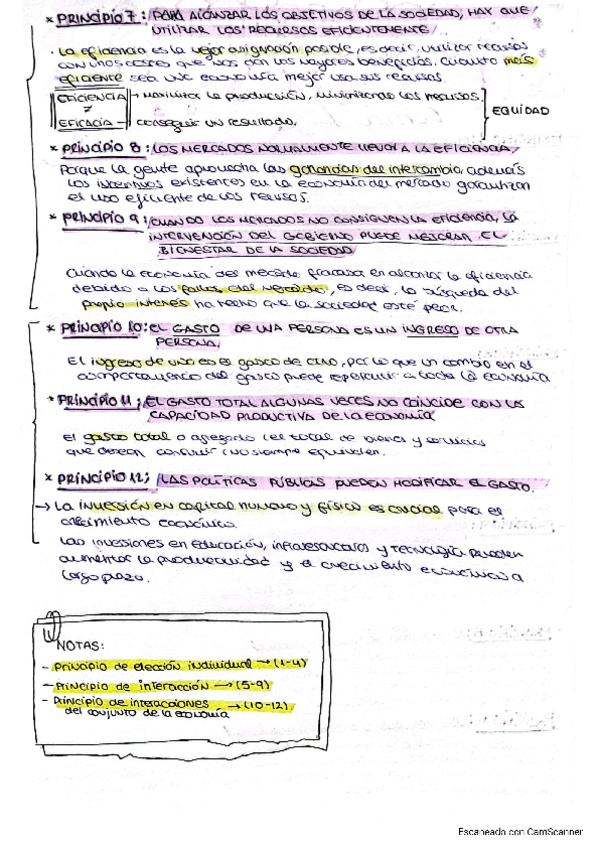 * PRINCIPIO 7: PARA ALCANZAR LOS OBJETIVOS DE LA SOCIEDAD, HAY QUE
UTILIZAR LOS RECURSOS EFICIENTEMENTE
· La eficiencia es la mejor asignación posible, es decir, utilizar recursos
con unos costes que nos den los mayores beneficios. Cuanto más
eficiente sea una economía mejor usa sus recursos.
EFICIENCIA → maximiza la producción, minimizando los recursos.
≠
EFICACIA → conseguir un resultado.
EQUIDAD
* PRINCIPIO 8: LOS MERCADOS NORMALMENTE LLEVAN A LA EFICIENCIA
Porque la gente aprovecha las ganancias del intercambio, además
los incentivos existentes en la economía del mercado garantizan
el uso eficiente de los recursos.
* PRINCIPIO 9: CUANDO LOS MERCADOS NO CONSIGUEN LA EFICIENCIA, LA
INTERVENCIÓN DEL GOBIERNO PUEDE MEJORAR EL
BIENESTAR DE LA SOCIEDAD
Cuando la economía del mercado fracasa en alcanzar la eficiencia
debido a los fallos del mercado, es decir, la búsqueda del
propio interés ha hecho que la sociedad esté peor.
* PRINCIPIO 10: EL GASTO DE UNA PERSONA ES UN INGRESO DE OTRA
PERSONA.
El ingreso de uno es el gasto de otro, por lo que un cambio en el
comportamiento del gasto puede repercutir a toda la economía
* PRINCIPIO 11: EL GASTO TOTAL ALGUNAS VECES NO COINCIDE CON LA
CAPACIDAD PRODUCTIVA DE LA ECONOMÍA
El gasto total o agregado (el total de bienes y servicios
que desean consumir) no siempre equivalen.
* PRINCIPIO 12: LAS POLÍTICAS PÚBLICAS PUEDEN MODIFICAR EL GASTO.
→ La inversión en capital humano y físico es crucial para el
crecimiento económico.
Las inversiones en educación, infraestructuras y tecnología pueden
aumentar la productividad y el crecimiento económico a
largo plazo.
NOTAS:
- Principio de elección individual → (1-4)
- Principio de interacción → (5-9)
- Principio de interacciones → (10-12)
del conjunto de la economía
Escaneado con CamScanner